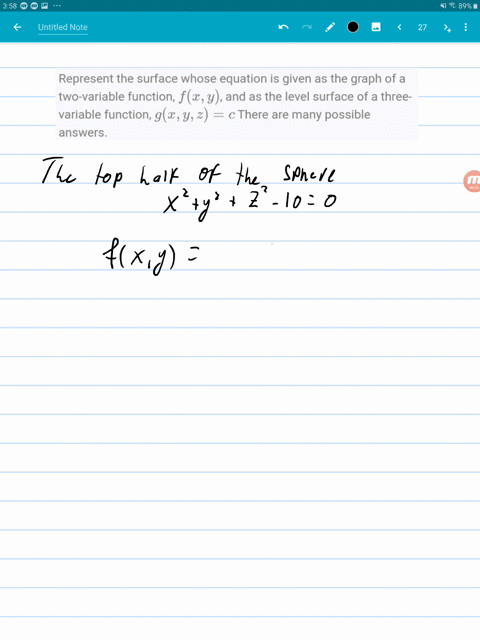 3:58
89%
Untitled Note
27
Represent the surface whose equation is given as the graph of a
two-variable function, f(x, y), and as the level surface of a three-
variable function, g(x, y, z) = c There are many possible
answers.
The top half of the sphere
x² + y² + z² - 10 = 0
f(x, y) =